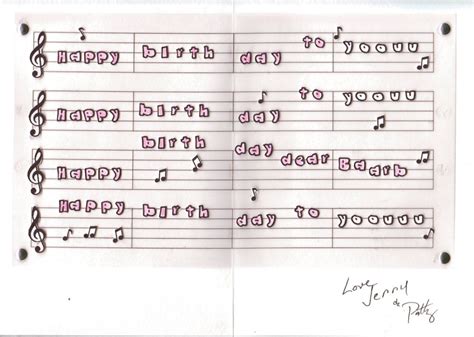 Happy birth day to yoouu
Happy birth day to yoouu
Happy birth day dear Baarb
Happy birth day to yoouuu
Love Jenny
& Patty